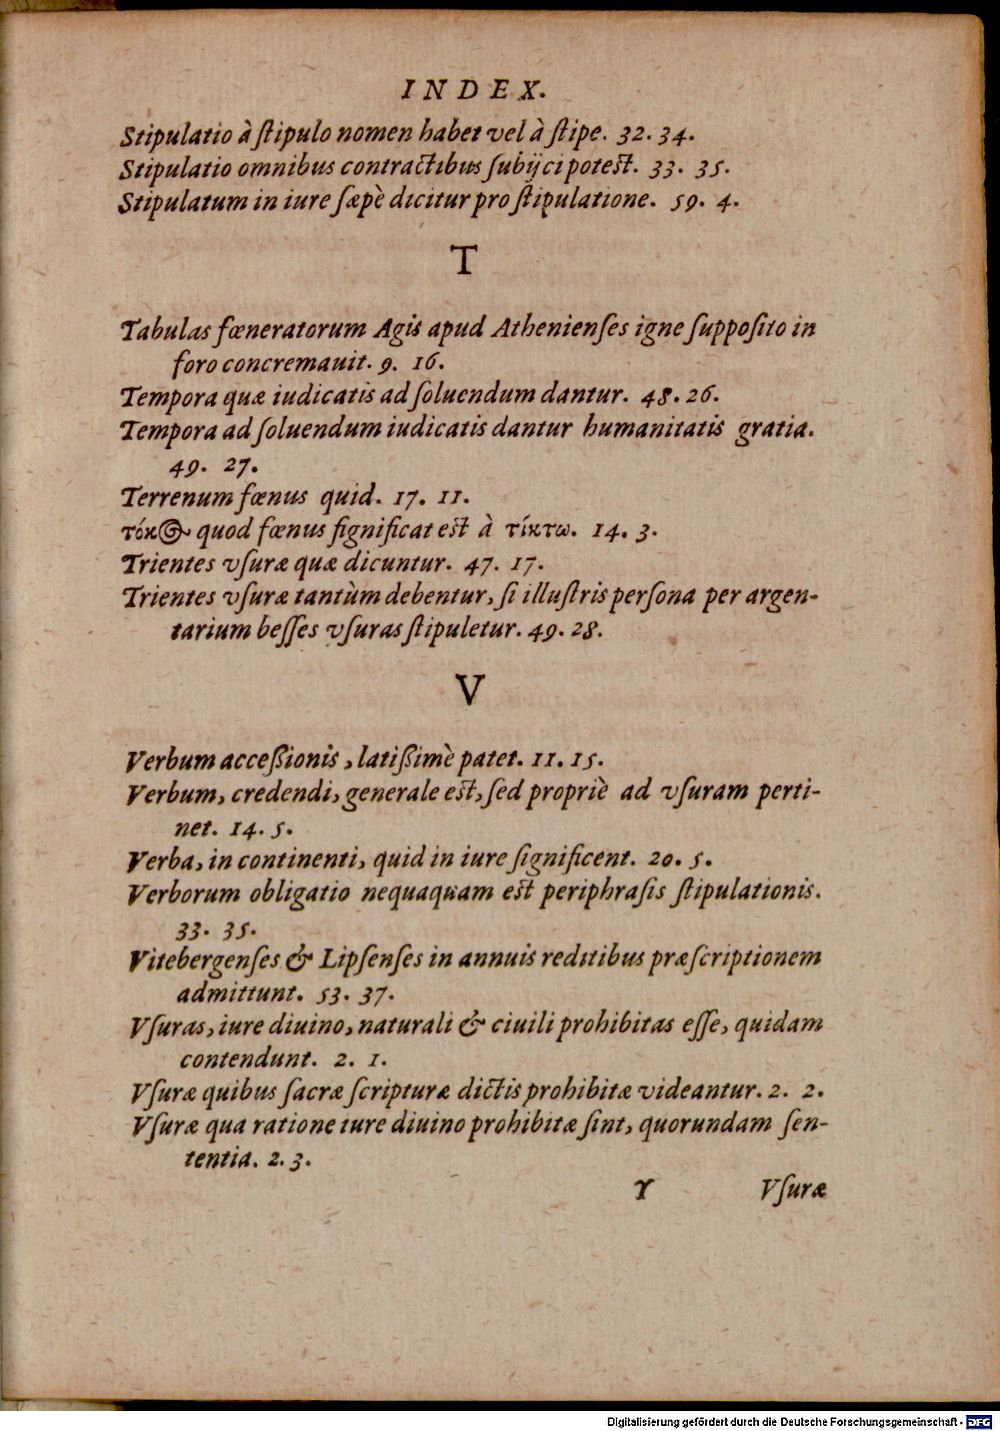 INDEX.
Stipulatio à ſtipulo nomen habet vel à ſtipe. 32. 34.
Stipulatio omnibus contractibus ſubijci poteſt. 33. 35.
Stipulatum in iure ſæpè dicitur pro ſtipulatione. 59. 4.
T
Tabulas fœneratorum Agis apud Athenienſes igne ſuppoſito in
foro concremauit. 9. 16.
Tempora quæ iudicatis ad ſoluendum dantur. 48. 26.
Tempora ad ſoluendum iudicatis dantur humanitatis gratia.
49. 27.
Terrenum fœnus quid. 17. 11.
τόκος quod fœnus ſignificat eſt à τίκτω. 14. 3.
Trientes vſuræ quæ dicuntur. 47. 17.
Trientes vſuræ tantùm debentur, ſi illuſtris perſona per argen-
tarium beſſes vſuras ſtipuletur. 49. 28.
V
Verbum acceßionis, latißimè patet. 11. 15.
Verbum, credendi, generale eſt, ſed propriè ad vſuram perti-
net. 14. 5.
Verba, in continenti, quid in iure ſignificent. 20. 5.
Verborum obligatio nequaquam eſt periphraſis ſtipulationis.
33. 35.
Vitebergenſes & Lipſenſes in annuis reditibus præſcriptionem
admittunt. 53. 37.
Vſuras, iure diuino, naturali & ciuili prohibitas eſſe, quidam
contendunt. 2. 1.
Vſuræ quibus ſacræ ſcripturæ dictis prohibitæ videantur. 2. 2.
Vſuræ qua ratione iure diuino prohibitæ ſint, quorundam ſen-
tentia. 2. 3.
Y Vſuræ
Digitalisierung gefördert durch die Deutsche Forschungsgemeinschaft - DFG